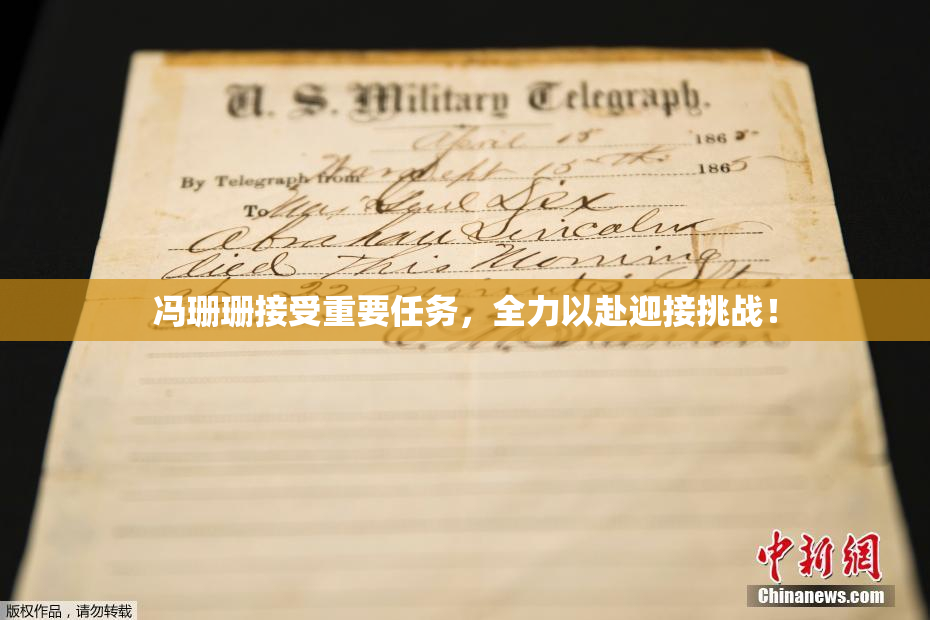 U. S. Military Telegraph.
April 15 1865
By Telegraph from War Dept 15th 1865
To Maj Genl Dix
Abraham Lincoln
died This Morning
at 22 minutes after
冯珊珊接受重要任务，全力以赴迎接挑战！
E. M. Stanton
中新網
Chinanews.com
版权作品，请勿转载